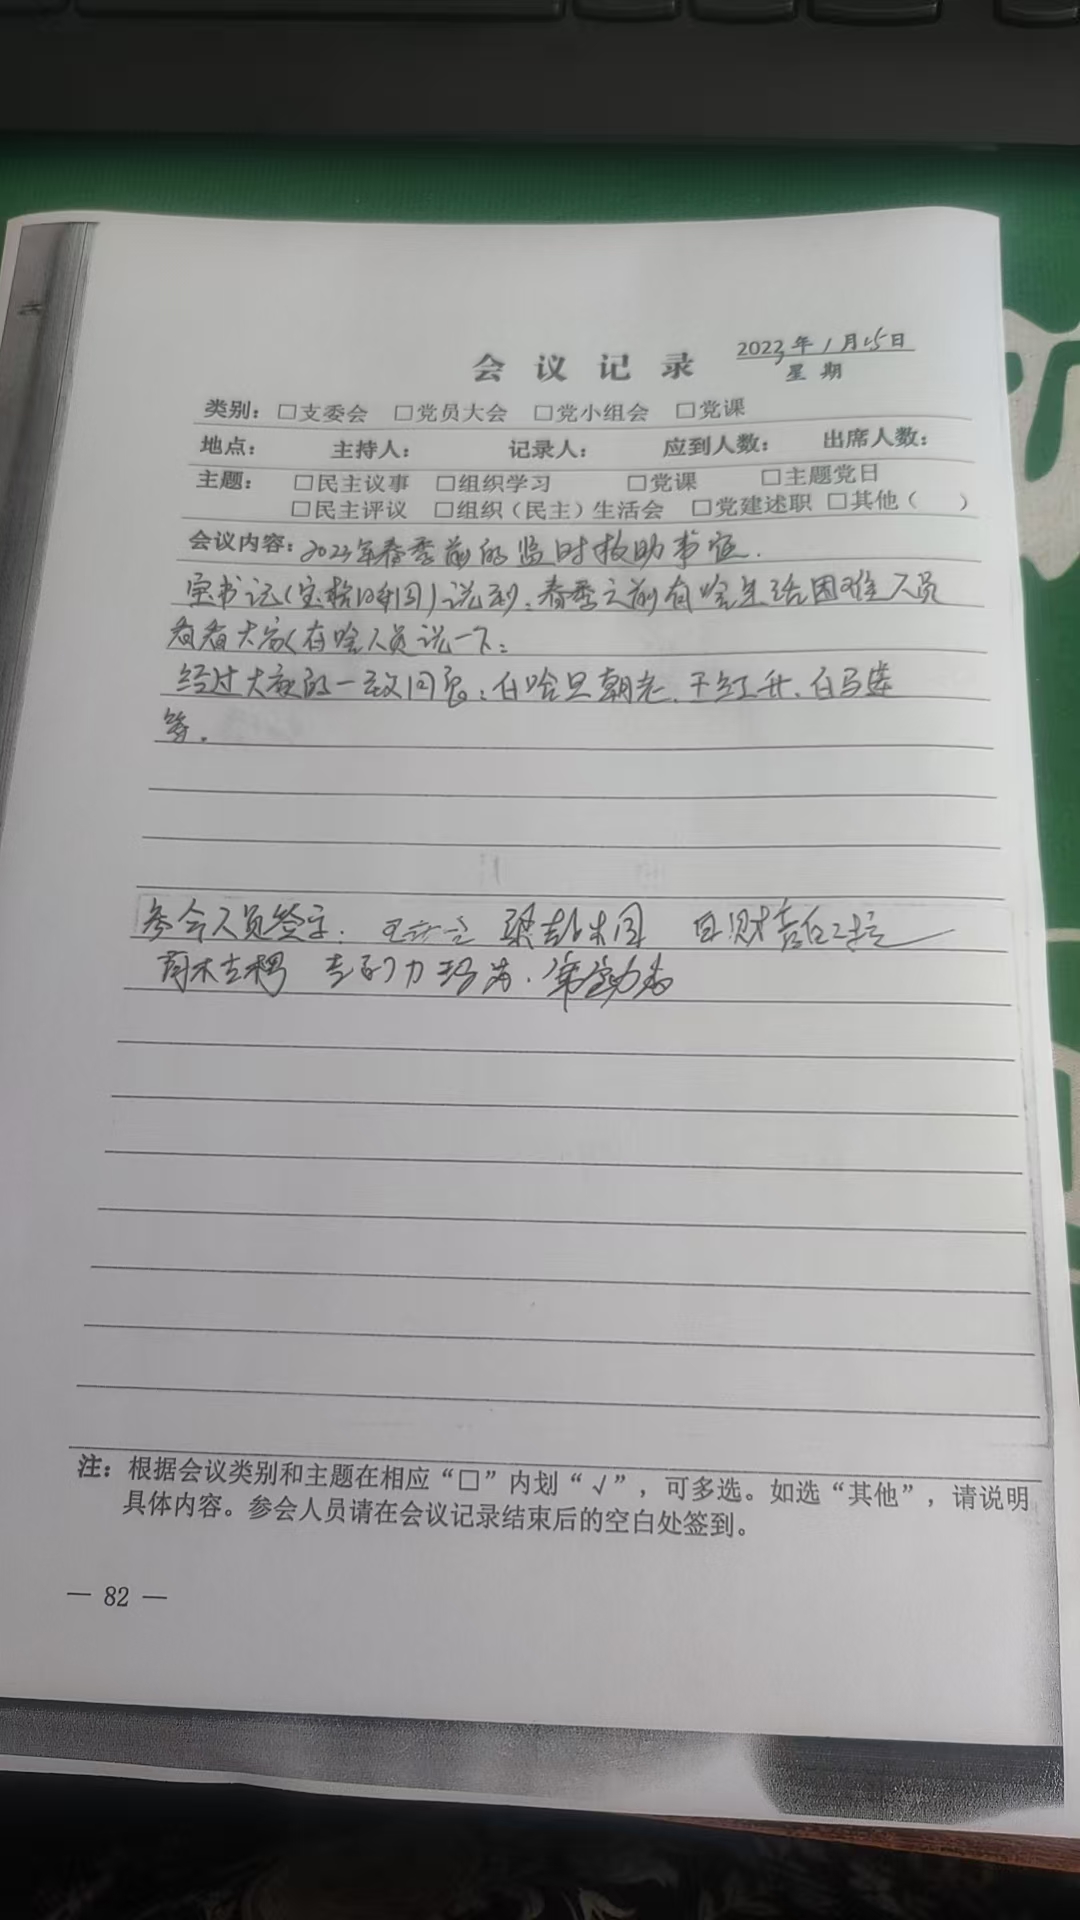 会议记录 2023年1月15日
星期
类别：□支委会 □党员大会 □党小组会 □党课
地点： 主持人： 记录人： 应到人数： 出席人数：
主题： □民主议事 □组织学习 □党课 □主题党日
□民主评议 □组织（民主）生活会 □党建述职 □其他（ ）
会议内容：2023年春季前的临时救助事宜.
宝书记(宝格日利图)说到：春季之前有啥生活困难人员
看看大家有啥人员说一下：
经过大家的一致同意：白哈旦朝老、王红升、白马莲
等.
参会人员签字：
注：根据会议类别和主题在相应“□”内划“√”，可多选。如选“其他”，请说明
具体内容。参会人员请在会议记录结束后的空白处签到。
— 82 —